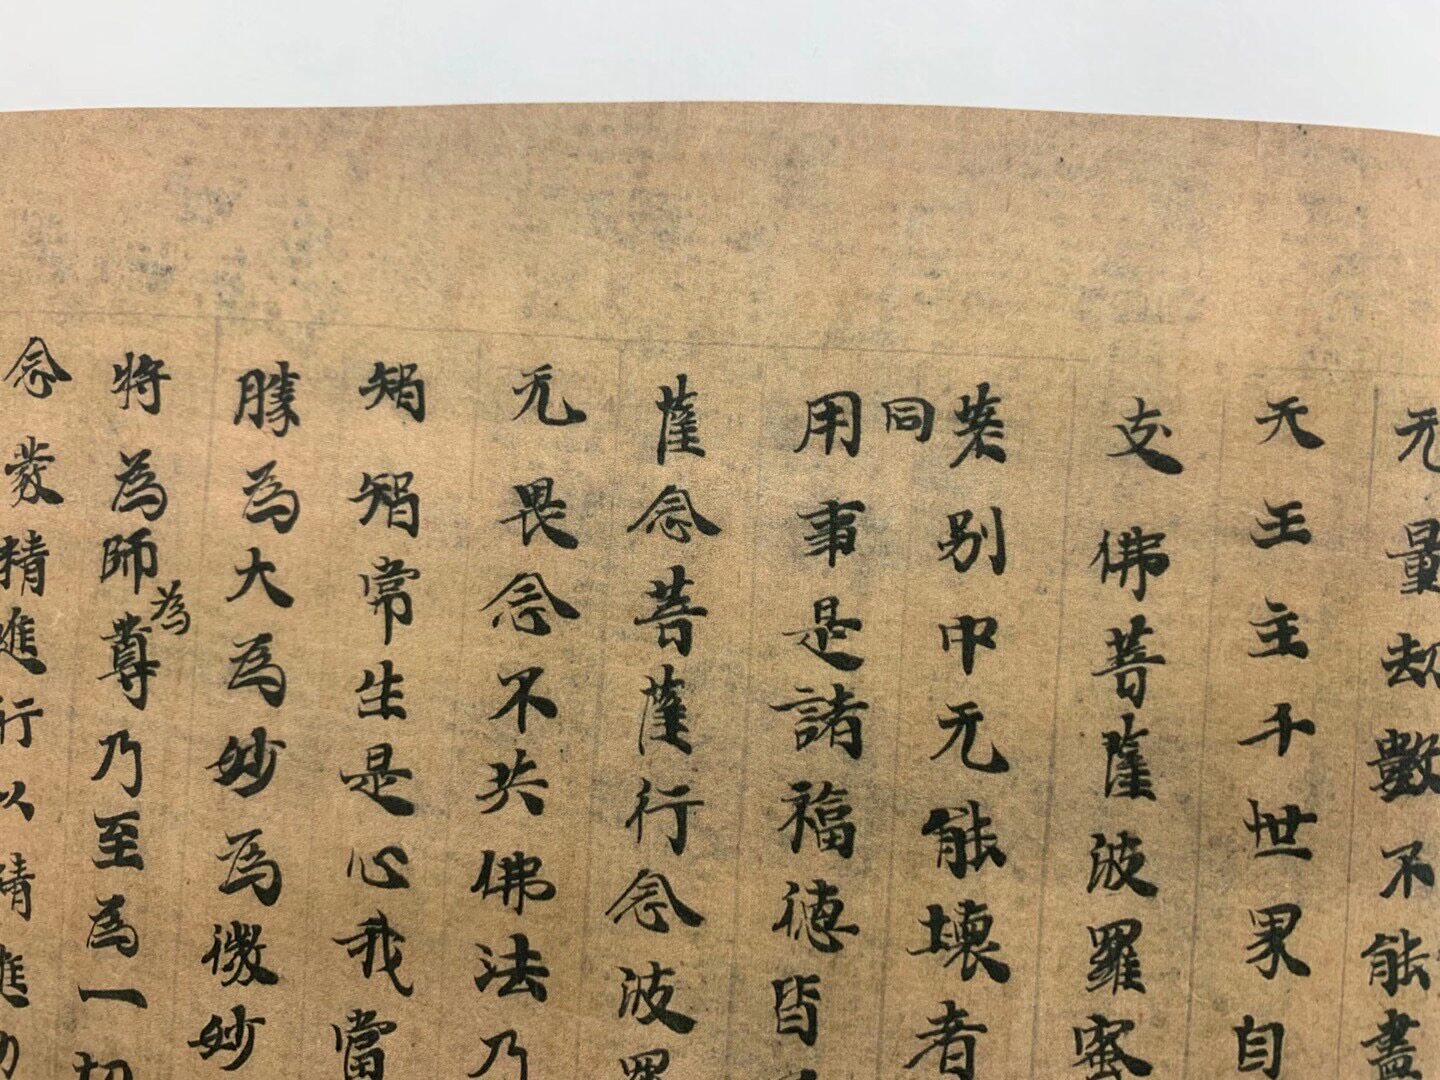 无量劫數不能盡
天王主千世界自
支佛菩薩波羅蜜
若別中无能壞者
同
用事是諸福德皆
薩念菩薩行念波羅
无畏念不共佛法乃
智智常生是心我當
勝為大為妙為微妙
將為師尊乃至為一切
為
念發精進行以精進